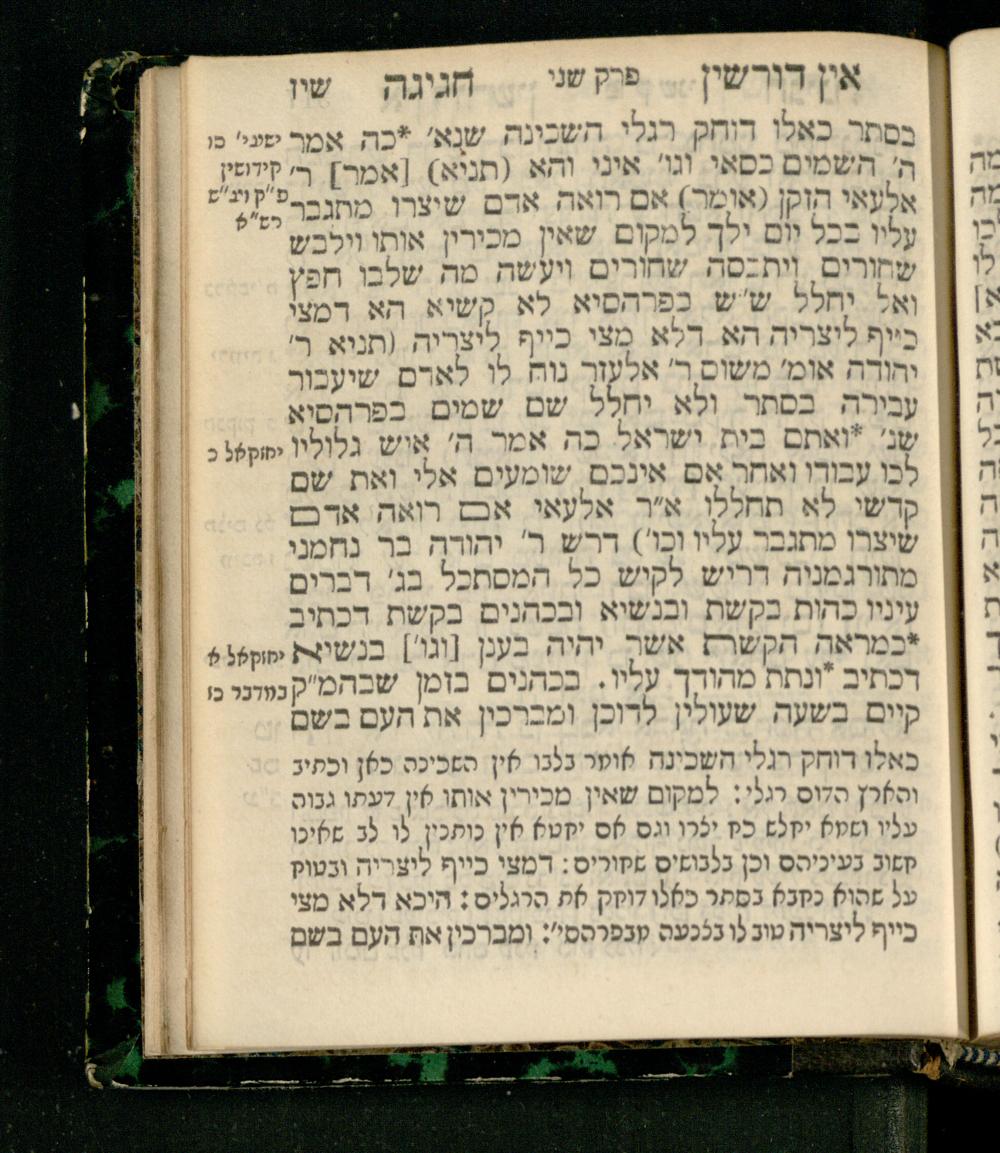 אין דורשין פרק שני חגיגה שיז
בסתר כאלו דוחק רגלי השכינה שנא׳ *כה אמר
ה׳ השמים כסאי וגו׳ איני והא (תניא) [אמר] ר׳
אלעאי הזקן (אומר) אם רואה אדם שיצרו מתגבר
עליו בכל יום ילך למקום שאין מכירין אותו וילבש
שחורים ויתכסה שחורים ויעשה מה שלבו חפץ
ואל יחלל ש״ש בפרהסיא לא קשיא הא דמצי
כייף ליצריה הא דלא מצי כייף ליצריה (תניא ר׳
יהודה אומ׳ משום ר׳ אלעזר נוח לו לאדם שיעבור
עבירה בסתר ולא יחלל שם שמים בפרהסיא
שנ׳ *ואתם בית ישראל כה אמר ה׳ איש גלוליו
לכו עבודו ואחר אם אינכם שומעים אלי ואת שם
קדשי לא תחללו א״ר אלעאי אם רואה אדם
שיצרו מתגבר עליו וכו׳) דרש ר׳ יהודה בר נחמני
מתורגמניה דריש לקיש כל המסתכל בג׳ דברים
עיניו כהות בקשת ובנשיא ובכהנים בקשת דכתיב
*כמראה הקשת אשר יהיה בענן [וגו׳] בנשיא
דכתיב *ונתת מהודך עליו. בכהנים בזמן שבהמ״ק
קיים בשעה שעולין לדוכן ומברכין את העם בשם
כאלו דוחק רגלי השכינה אומר בלבו אין השכינה כאן וכתיב
והארץ הדום רגלי: למקום שאין מכירין אותו אין דעתו גבוה
עליו ושמא יקלש כח יצרו וגם אם יחטא אין נותנין לו לב שאינו
חשוב בעיניהם וכן בלבושים שחורים: דמצי כייף ליצריה ובטוח
על שהוא נחבא בסתר כאלו דוחק את הרגלים: היכא דלא מצי
כייף ליצריה טוב לו בצנעה מבפרהסי׳: ומברכין את העם בשם
ישעי׳ סו
קידושין
פ״ק ויב״ש
רש״א
יחזקאל כ
יחזקאל א
במדבר כז